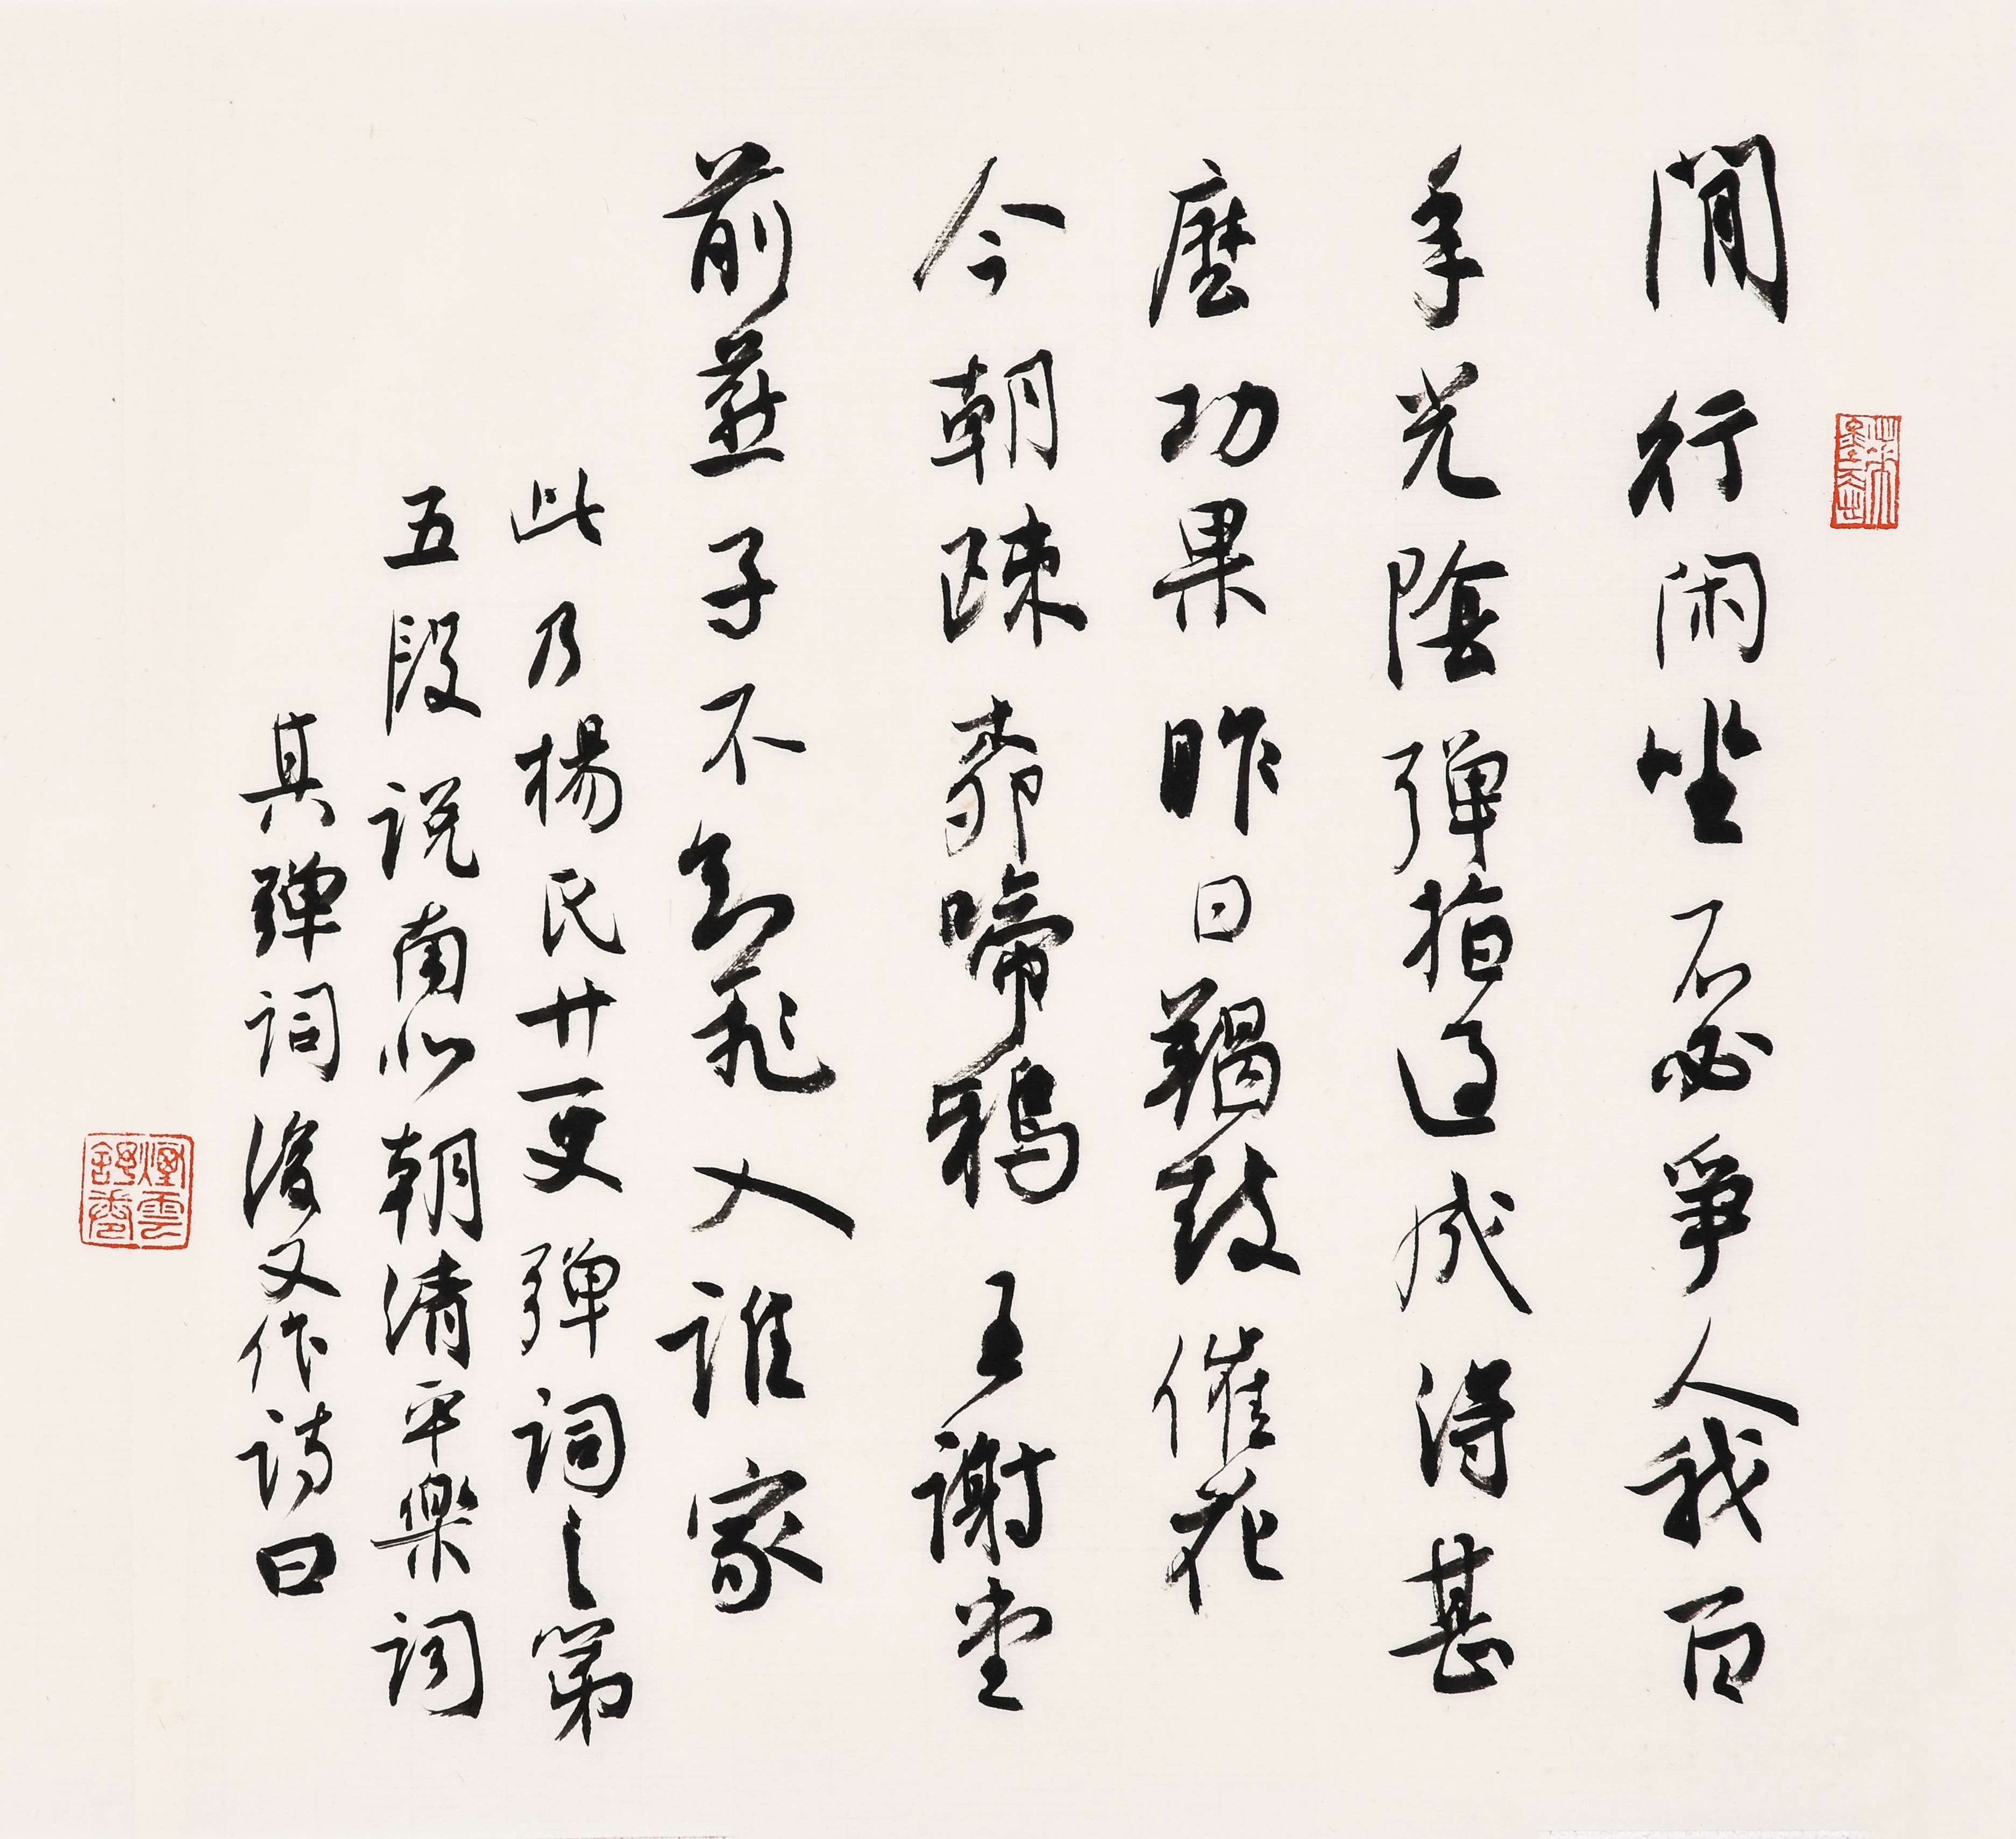 閒行闲坐不必爭人我百
年光陰弹指過成得甚
麼功果昨日羯鼓催花
今朝疎桺啼鴉王謝堂
前燕子不知飛入誰家
此乃楊氏廿一史弹詞之第
五段說南北朝清平樂詞
其弹詞後又作詩曰